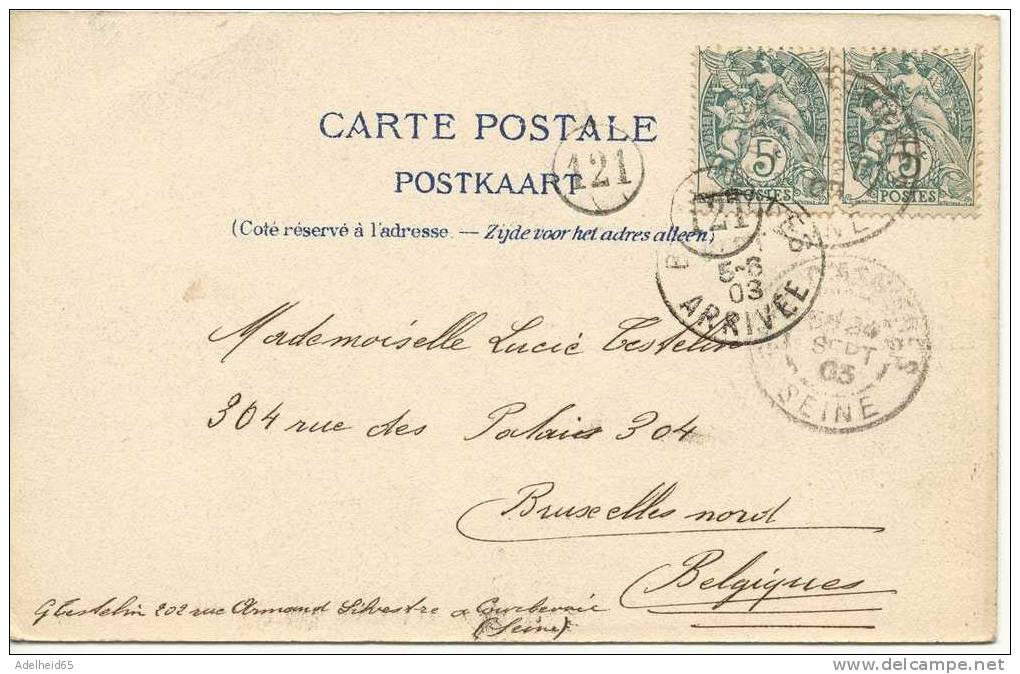 CARTE POSTALE
POSTKAART
(Coté réservé à l'adresse. — Zijde voor het adres alleen)
121
121
5 c
POSTES
5 c
POSTES
5-6
03
ARRIVÉE
24
SEPT
03
SEINE
Mademoiselle Lucie Testelin
304 rue des Palais 304
Bruxelles nord
Belgiques
G Testelin 202 rue Armand Silvestre a Courbevoie
(Seine)
Adelheid65
delcampe.net